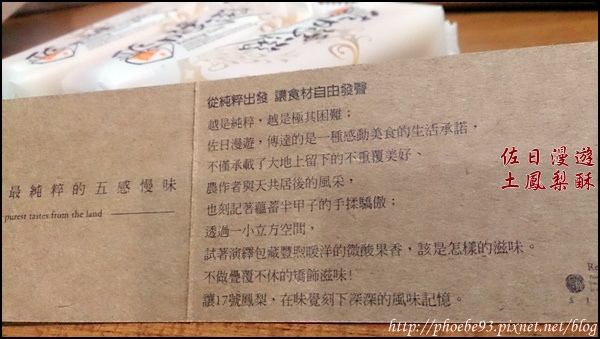 最純粹的五感慢味
purest tastes from the land
從純粹出發 讓食材自由發聲
越是純粹，越是極其困難；
佐日漫遊，傳達的是一種感動美食的生活承諾，
不僅承載了大地上留下的不重覆美好、
農作者與天共居後的風采，
也刻記著蘊蓄半甲子的手揉驕傲；
透過一小立方空間，
試著演繹包藏豐煦暖洋的微酸果香，該是怎樣的滋味。
不做疊覆不休的矯飾滋味!
讓17號鳳梨，在味覺刻下深深的風味記憶。
佐日漫遊
土鳳梨酥
http://phoebe93.pixnet.net/blog